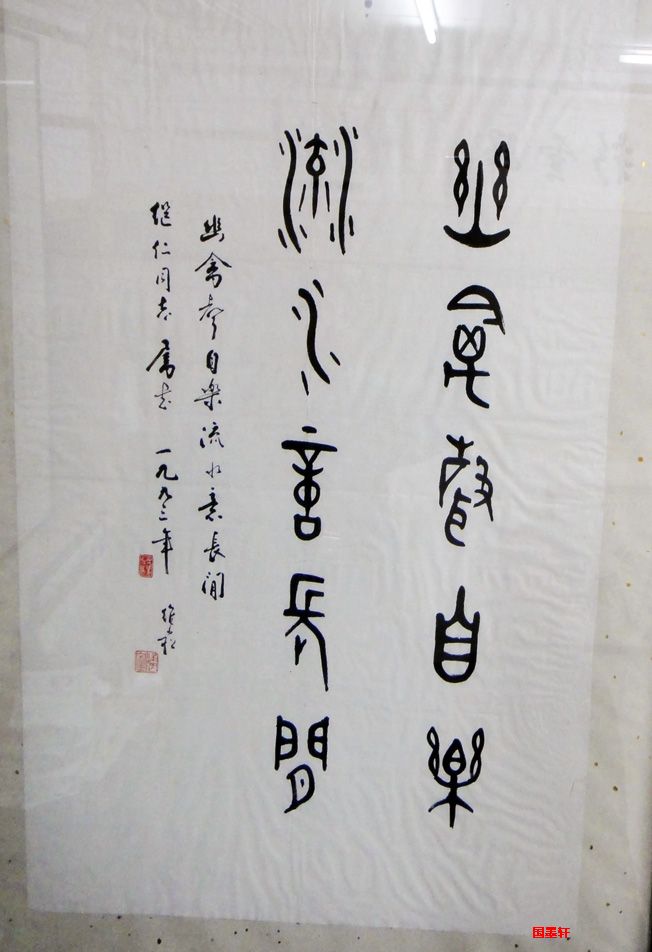 幽禽聲自樂
流水意長閒
幽禽聲自樂流水意長閒
继仁同志属书 一九九三年
国墨轩